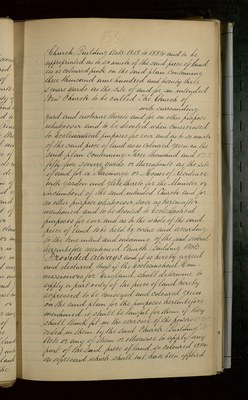 Church Building Acts 1818 to 1884 and to be
appropriated as to so much of the said piece of land
as is coloured pink on the said plan containing
three thousand nine hundred and ninety three
square yards as the site of and for an intended
New Church to be called The Church of
with surrounding
yard and inclosure thereto and for no other purpose
whatsoever and to be devoted when consecrated
to ecclesiastical purposes for ever and as to so much
of the said piece of land as is coloured green on the
said plan containing three thousand and
fifty four square yards or thereabouts as the site
of and for a Parsonage or House of Residence
with garden and glebe thereto for the Minister or
Incumbent of the said intended church and for
no other purpose whatsoever save as hereinafter
mentioned and to be devoted to ecclesiastical
purposes for ever and as to the whole of the said
piece of land to be held by and according
to the true intent and meaning of the said several
hereinbefore mentioned Church Building Acts
Provided always and it is hereby agreed
and declared that if the Ecclesiastical Com-
missioners for England shall determine to
apply any part only of the piece of land hereby
expressed to be conveyed and coloured green
on the said plan for the purposes hereinbefore
mentioned it shall be lawful for them if they
shall think fit in the exercise of the powers
vested in them by the said Church Building
Acts or any of them or otherwise to apply any
part of the said piece of land so coloured green
as aforesaid which shall not have been applied